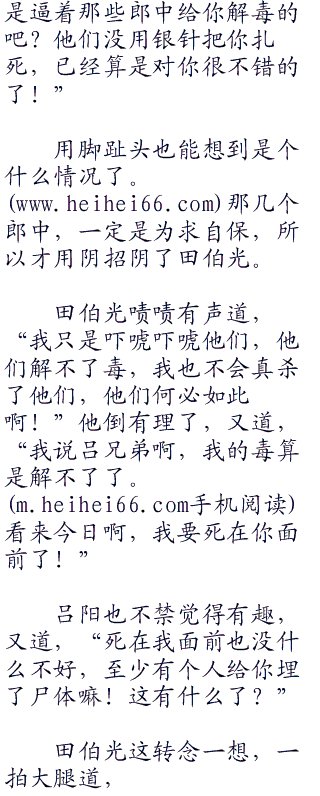 是逼着那些郎中给你解毒的
吧？他们没用银针把你扎
死，已经算是对你很不错的
了！”
用脚趾头也能想到是个
什么情况了。
(www.heihei66.com)那几个
郎中，一定是为求自保，所
以才用阴招阴了田伯光。
田伯光啧啧有声道，
“我只是吓唬吓唬他们，他
们解不了毒，我也不会真杀
了他们，他们何必如此
啊！”他倒有理了，又道，
“我说吕兄弟啊，我的毒算
是解不了了。
(m.heihei66.com手机阅读)
看来今日啊，我要死在你面
前了！”
吕阳也不禁觉得有趣，
又道，“死在我面前也没什
么不好，至少有个人给你埋
了尸体嘛！这有什么了？”
田伯光这转念一想，一
拍大腿道，